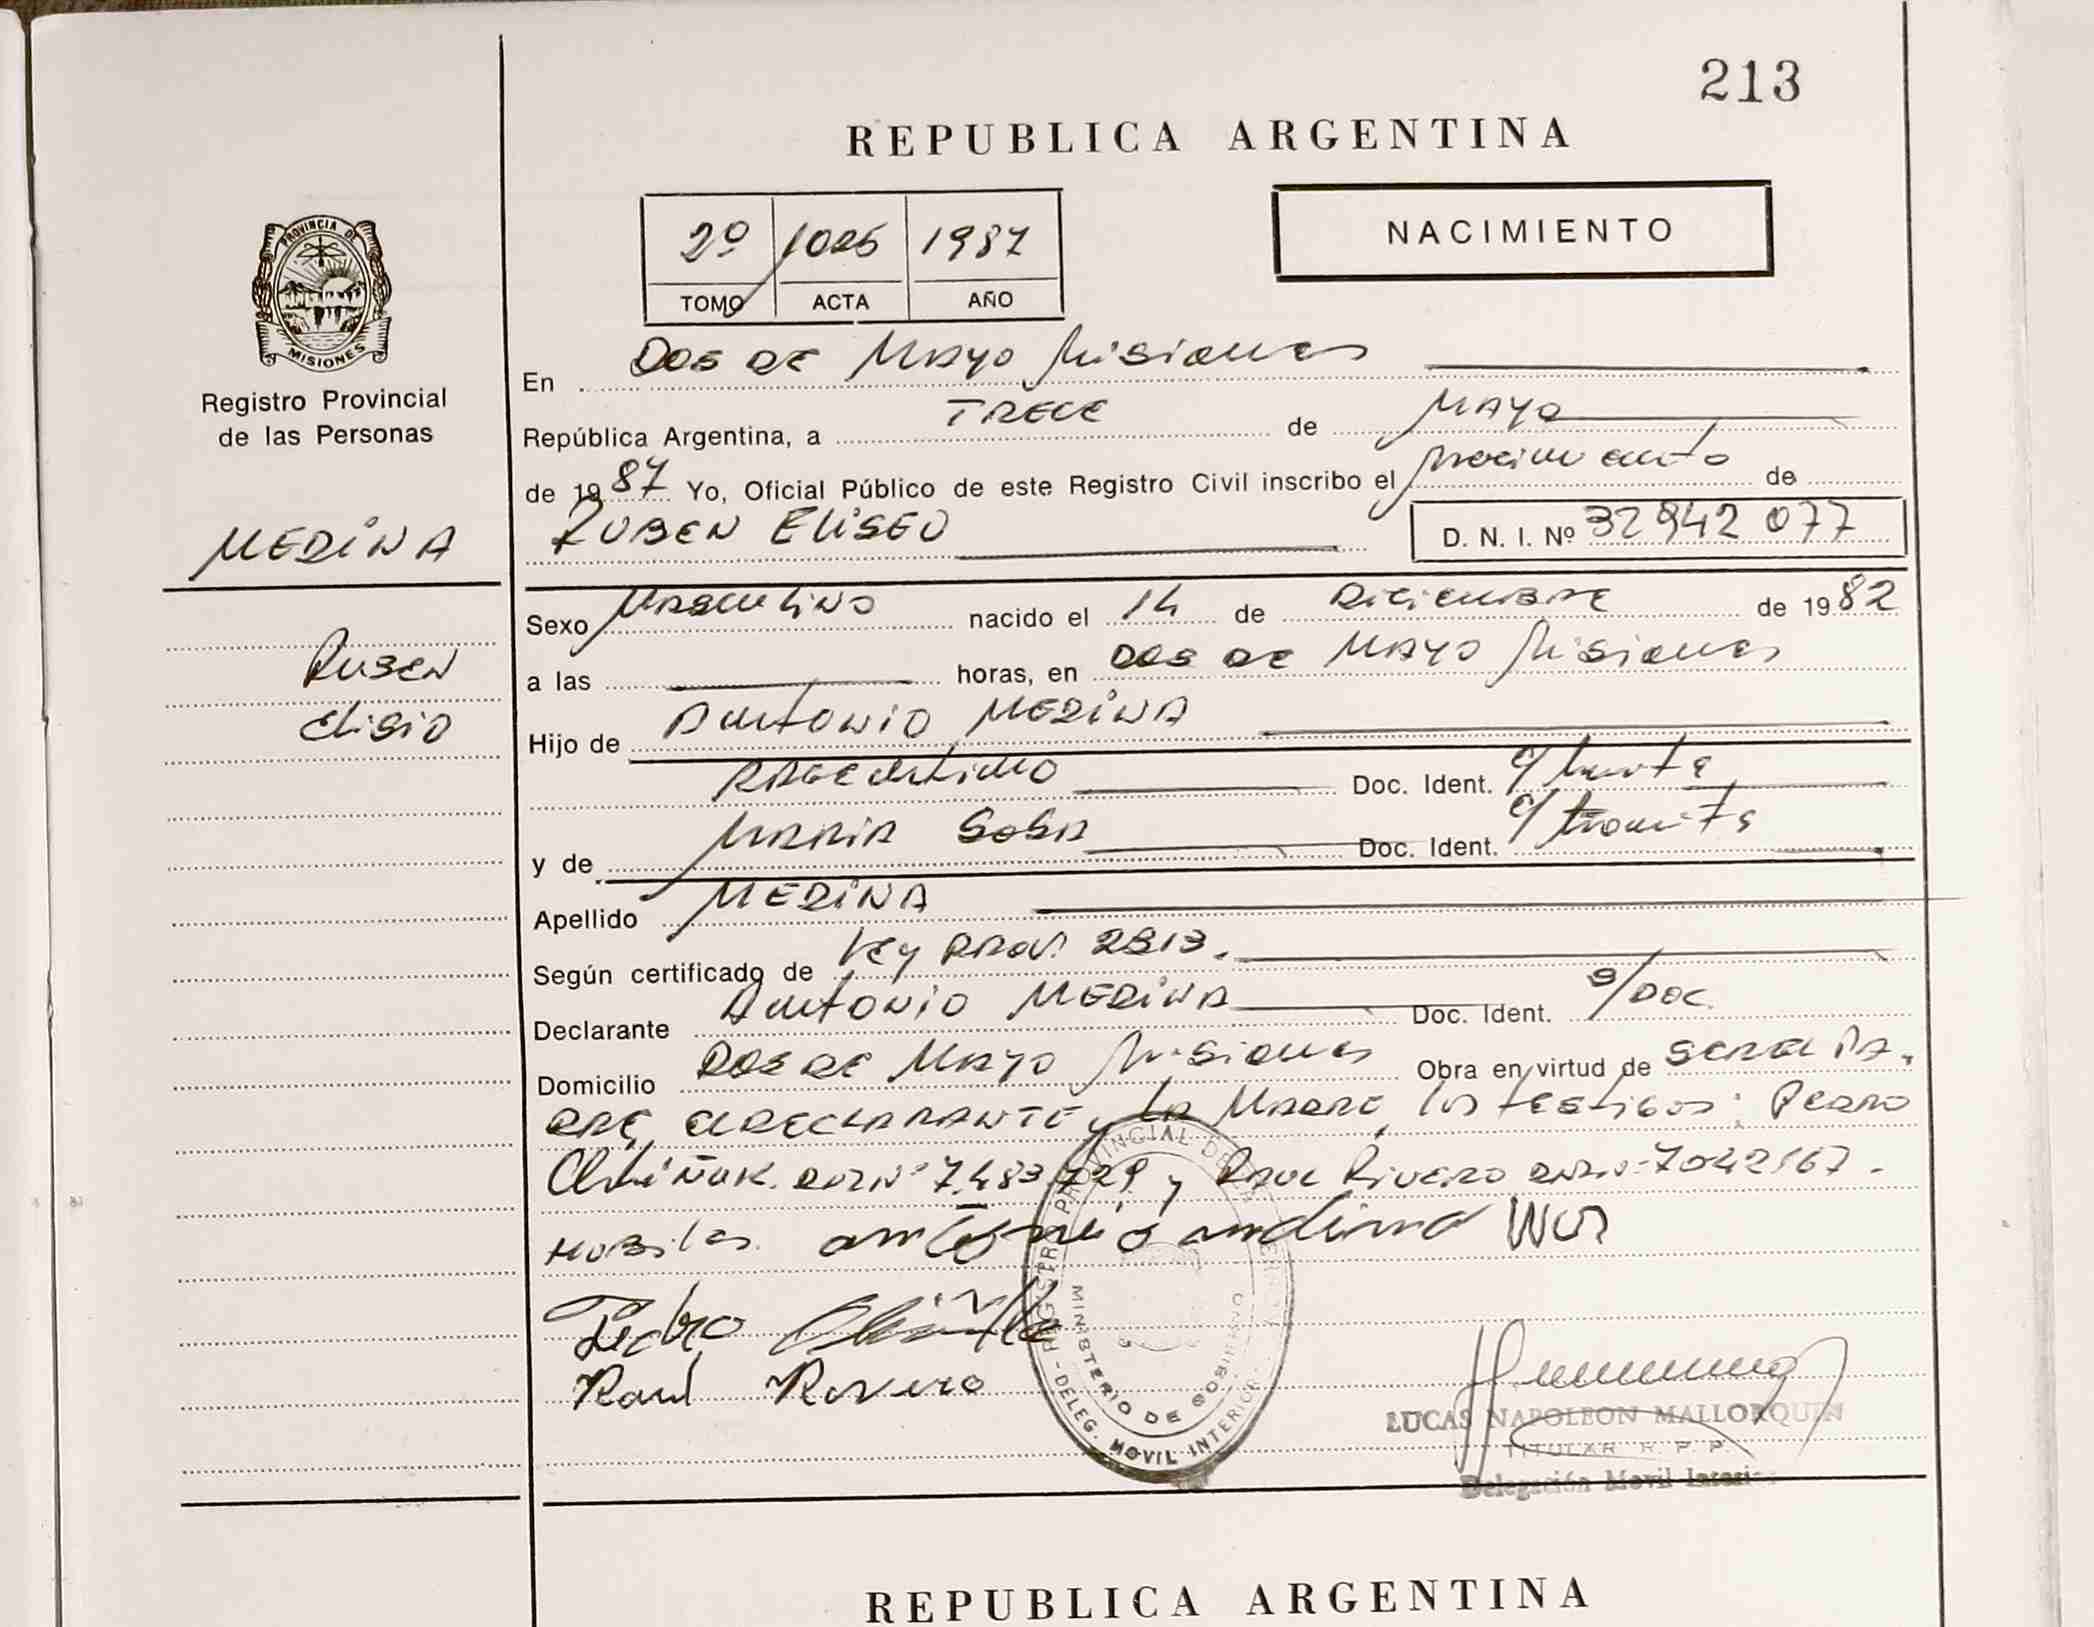 213
REPUBLICA ARGENTINA
2º 1025 1987
TOMO ACTA AÑO
NACIMIENTO
PROVINCIA DE
MISIONES
Registro Provincial
de las Personas
MEDINA
Ruben
Elisio
En Dos de Mayo Misiones
República Argentina, a TRECE de MAYO
de 1987 Yo, Oficial Público de este Registro Civil inscribo el nacimiento de
RUBEN ELISEO D. N. I. Nº 32942077
Sexo Masculino nacido el 14 de Diciembre de 1982
a las horas, en Dos de Mayo Misiones
Hijo de Antonio MEDINA
Argentino Doc. Ident.
y de MARIA SOSA Doc. Ident.
Apellido MEDINA
Según certificado de Ley Prov. 2813.
Declarante Antonio MEDINA Doc. Ident. S/DOC.
Domicilio Dos de Mayo Misiones Obra en virtud de ser el Pa-
dre, el declarante y la Madre, los testigos: Pedro
7.483.729 y Raul Rivero 7042167.
Pedro
Raul Rivero
REGISTRO PROVINCIAL DE LAS PERSONAS
MINISTERIO DE GOBIERNO
DELEG. MOVIL INTERIOR
LUCAS NAPOLEON MALLORQUIN
TITULAR R. P. P.
Delegación Movil Interior
REPUBLICA ARGENTINA